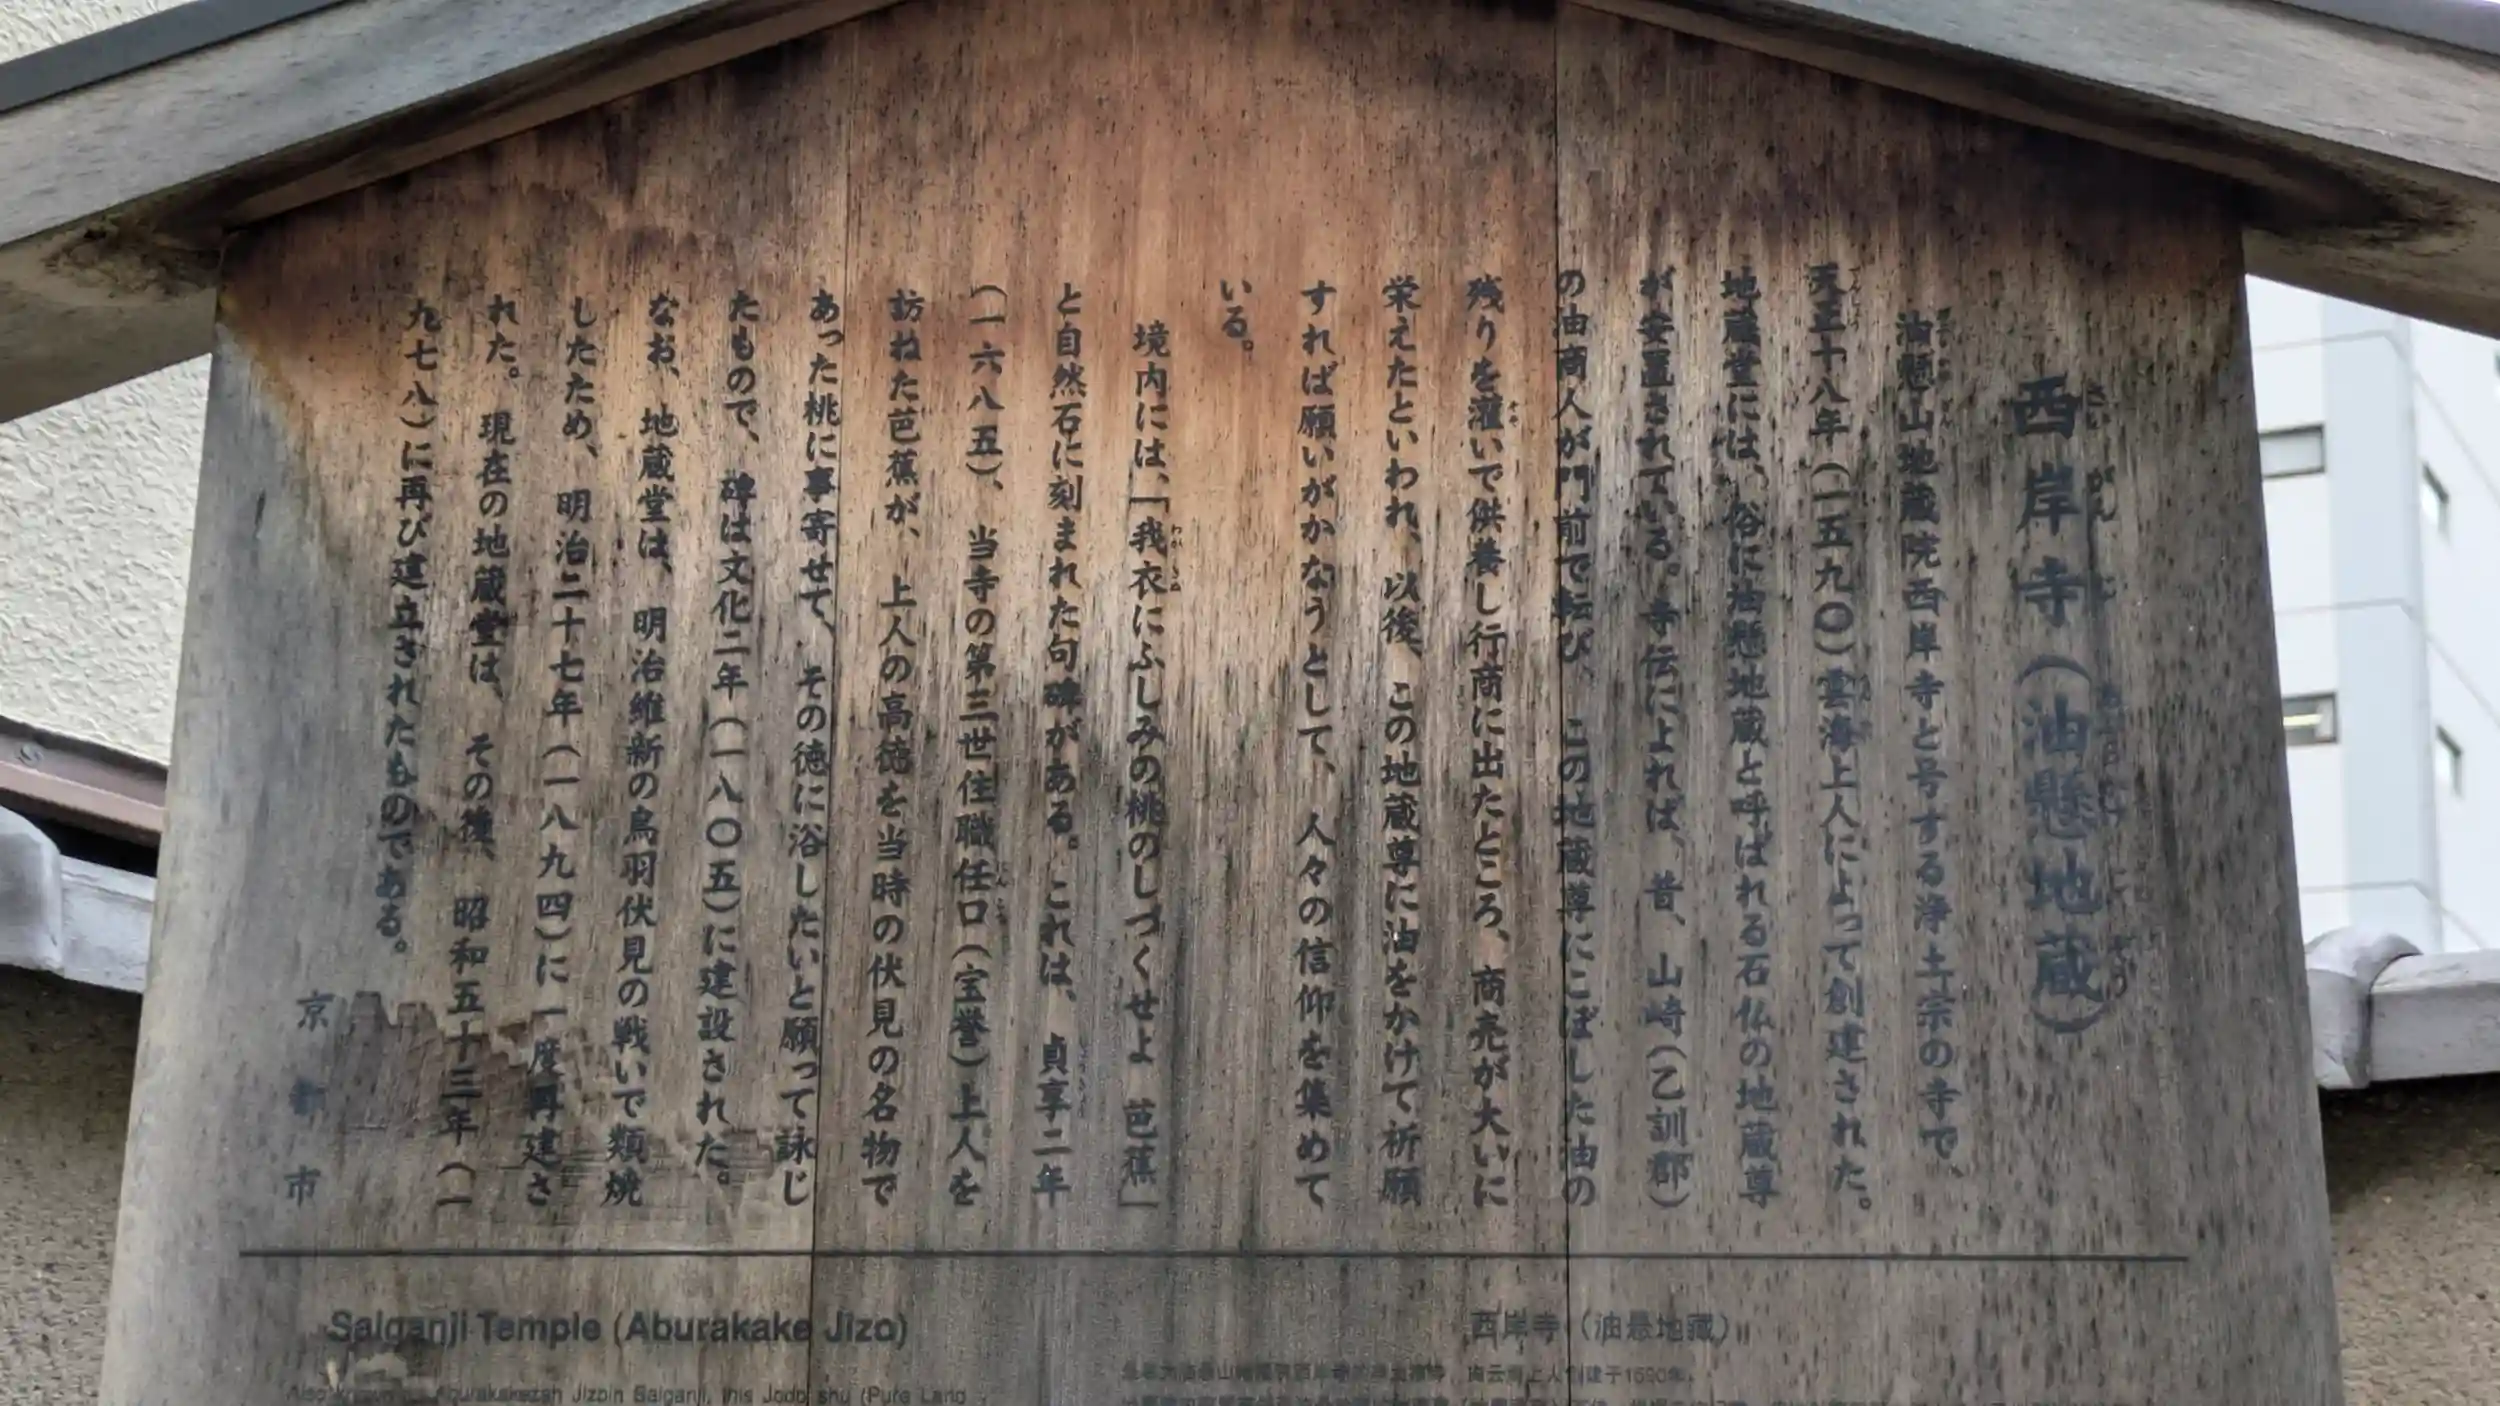 西岸寺（油懸地蔵）
油懸山地蔵院西岸寺と号する浄土宗の寺で、
天正十八年（一五九〇）雲海上人によって創建された。
地蔵堂には、俗に油懸地蔵と呼ばれる石仏の地蔵尊
が安置されている。寺伝によれば、昔、山崎（乙訓郡）
の油商人が門前で転び、この地蔵尊にこぼした油の
残りを灌いで供養し行商に出たところ、商売が大いに
栄えたといわれ、以後、この地蔵尊に油をかけて祈願
すれば願いがかなうとして、人々の信仰を集めて
いる。
境内には、「我衣にふしみの桃のしづくせよ 芭蕉」
と自然石に刻まれた句碑がある。これは、貞享二年
（一六八五）、当寺の第三世住職任口（宝誉）上人を
訪ねた芭蕉が、上人の高徳を当時の伏見の名物で
あった桃に事寄せて、その徳に浴したいと願って詠じ
たもので、碑は文化二年（一八〇五）に建設された。
なお、地蔵堂は、明治維新の鳥羽伏見の戦いで類焼
したため、明治二十七年（一八九四）に一度再建さ
れた。現在の地蔵堂は、その後、昭和五十三年（一
九七八）に再び建立されたものである。
京都市
Saiganji Temple (Aburakake Jizo)
Also known as Aburakakezan Jizoin Saiganji, this Jodo shu (Pure Land
西岸寺（油悬地藏）